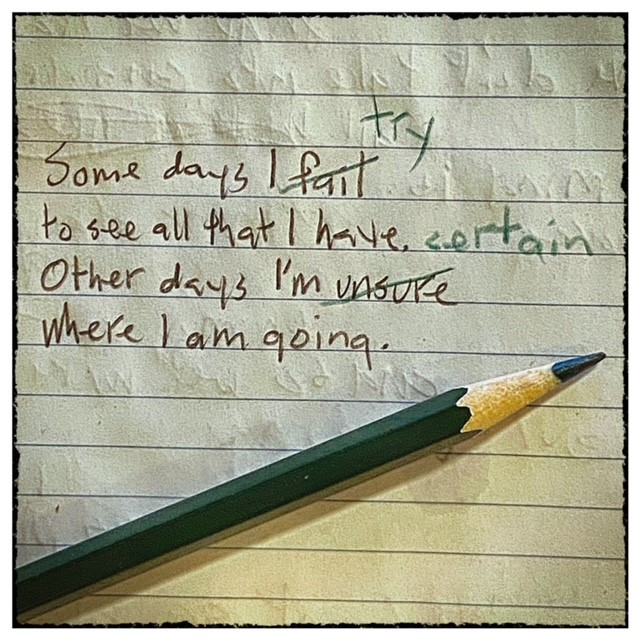 try
Some days I fail
to see all that I have. certain
Other days I'm unsure
where I am going.